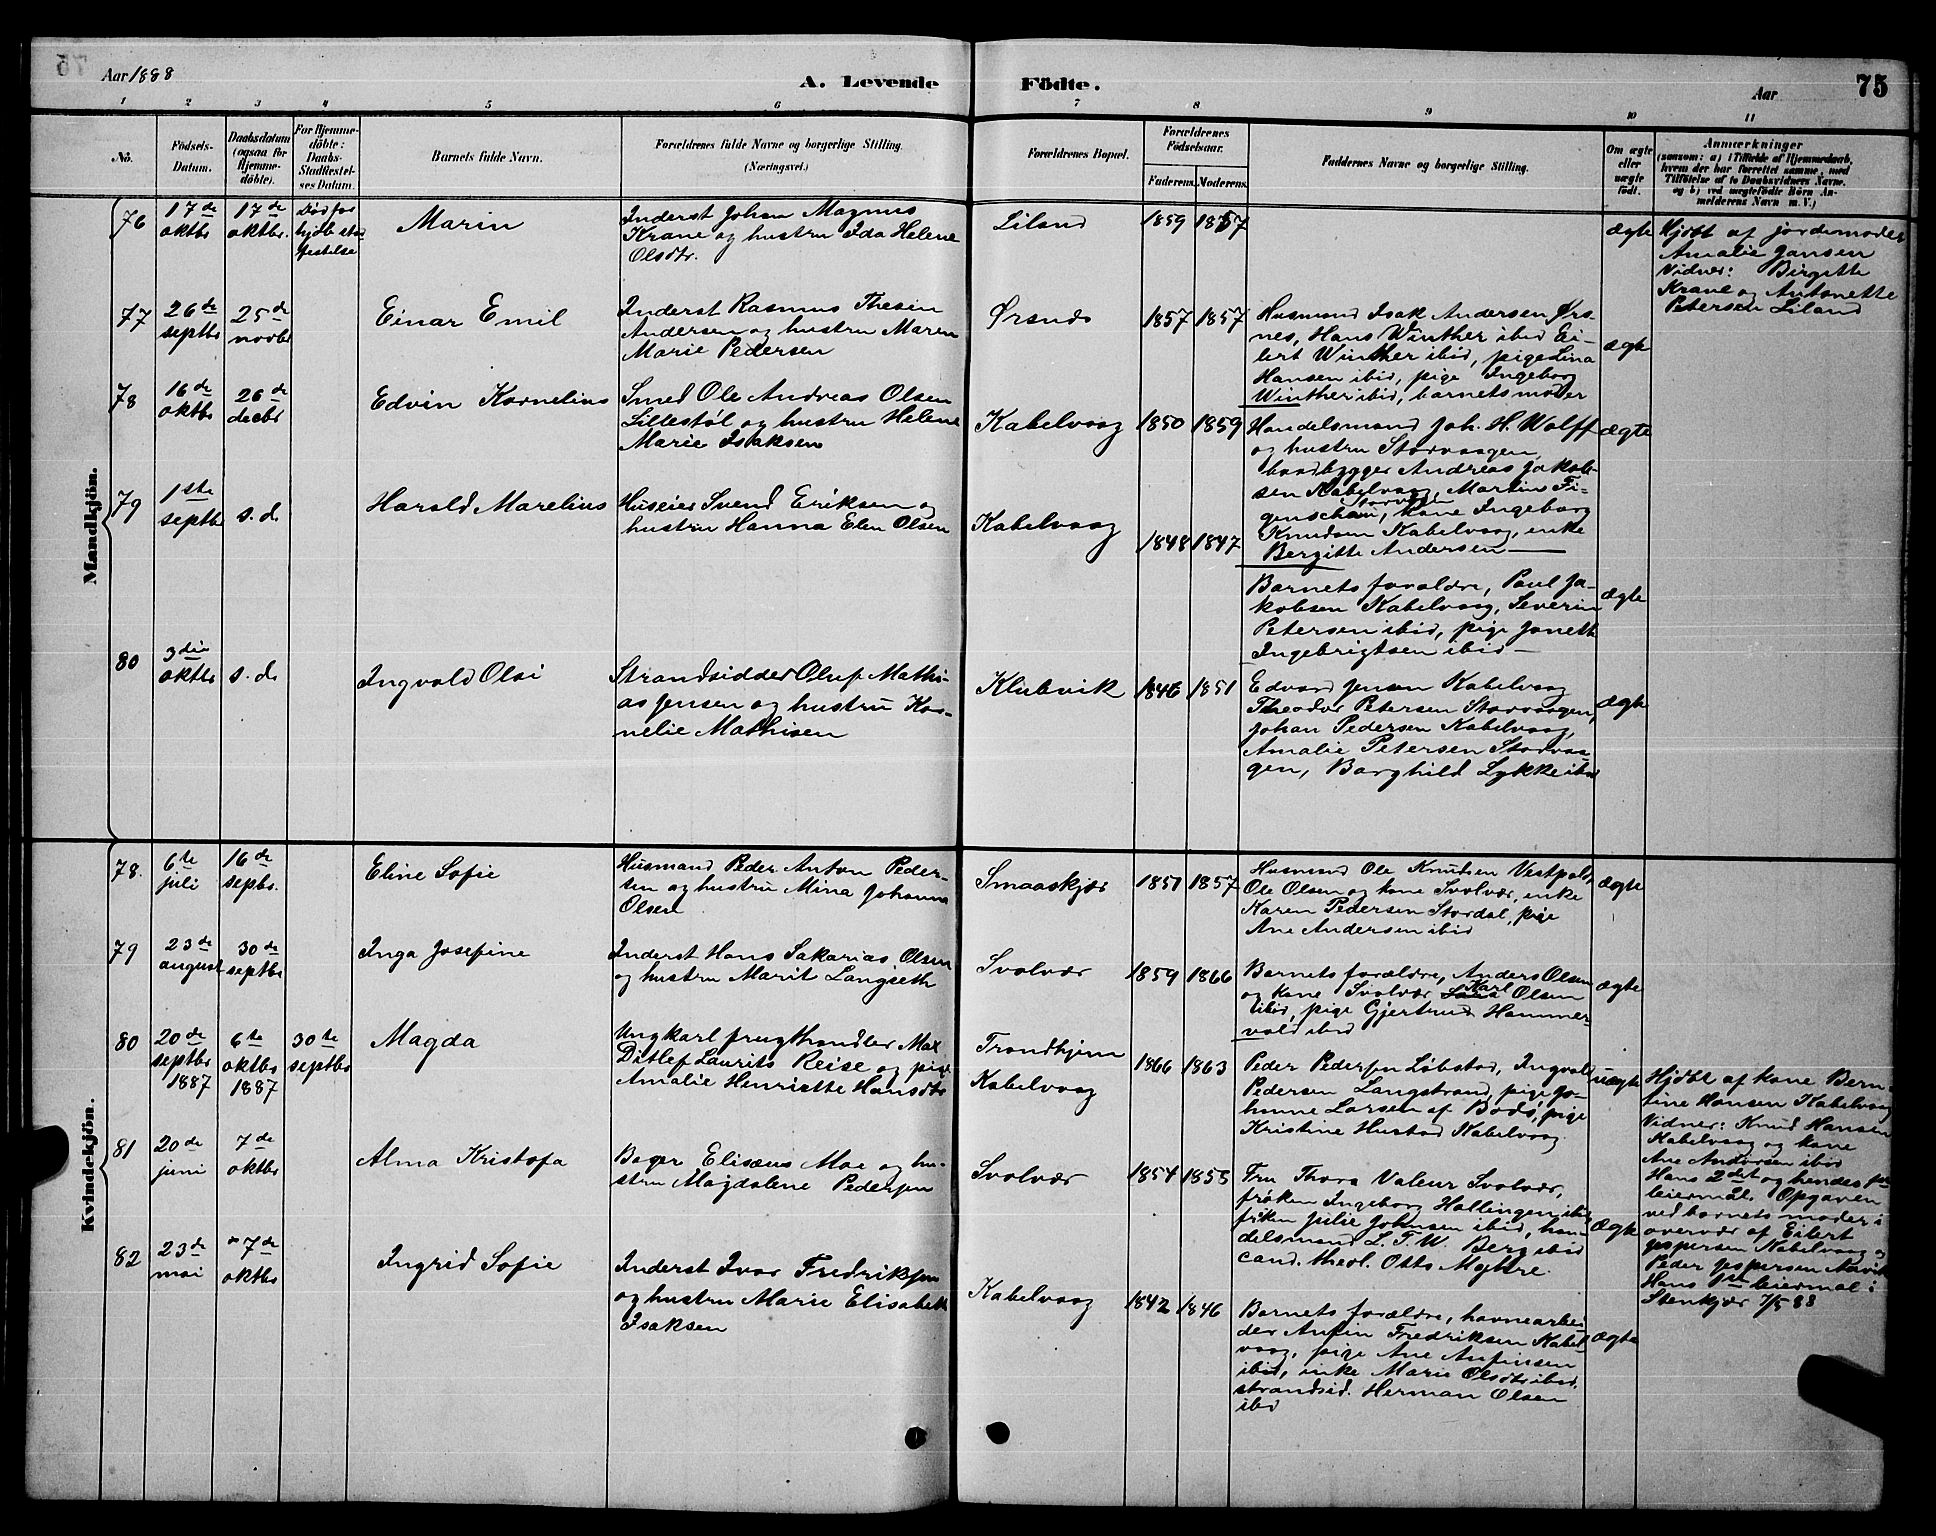 Aar 1888
A. Levende
Födte.
Aar
75
1 2 3 4 5 6 7 8 9 10 11
No.
Födsels-
Datum.
Daabsdatum
(ogsaa for
Hjemme-
döbte).
For Hjemme-
döbte:
Daabs-
Stadfæstel-
ses Datum.
Barnets fulde Navn.
Forældrenes fulde Navne og borgerlige Stilling.
(Næringsvei.)
Forældrenes Bopæl.
Forældrenes
Födselsaar.
Faderens. Moderens.
Faddernes Navne og borgerlige Stilling.
Om ægte
eller
uægte
født.
Anmærkninger
(saasom: a) i Tilfælde af Hjemmedaab,
hvem der har forrettet samme, med
Tilföielse af to Daabsvidners Navne.
og b) ved uægtefödte Börn An-
melderens Navn m. V.)
Mandkjön.
76
17de
oktbr
17de
oktbr.
Död før
hjdb. stad
festelse
Marin
Inderst Johan Magnus
Krane og hustru Ida Helene
Olsdtr.
Liland
1859 1857
ægte
Hjdbt af jordemoder
Amalie Jansen
Vidner: Birgitte
Krane og Antonette
Petersen Liland
77
26de
septbr
25de
novbr
Einar Emil
Inderst Rasmus Thesen
Andersen og hustru Maren
Marie Pedersen
Ørsnes
1857 1857
Husmand Isak Andersen Ørs-
nes, Hans Winther ibid Ei-
lert Winther ibid, pige Lina
Hansen ibid, pige Ingeborg
Winther ibid, barnets moder
ægte
78
16de
oktbr
26de
decbr
Edvin Kornelius
Smed Ole Andreas Olsen
Lillestøl og hustru Helene
Marie Isaksen
Kabelvaag
1850 1859
Handelsmand Joh. H. Wolff
og hustru Storvaagen,
baadbygger Andreas Jakob-
sen Kabelvaag, Martin Fi-
genschau, Storvaagen kone Ingeborg
Knudsen Kabelvaag, enke
Bergitte Andersen —
ægte
79
1ste
septbr
s. d.
Harald Marelius
Huseier Svend Eriksen og
hustru Hanna Elen Olsen
Kabelvaag
1848 1847
Barnets forældre, Paul Ja-
kobsen Kabelvaag, Severin
Petersen ibid, pige Janette
Ingebrigtsen ibid —
ægte
80
3die
oktbr
s. d.
Ingvald Olai
Strandsidder Oluf Mathi-
as Jensen og hustru Kor-
nelie Mathisen
Klubvik
1846 1851
Edvard Jensen Kabelvaag
Theodor Petersen Storvaagen,
Johan Pedersen Kabelvaag,
Amalie Petersen Storvaa-
gen, Borghild Lykke ibid
ægte
Kvindekjön.
78.
6te
juli
16de
septbr.
Eline Sofie
Husmand Peder Anton Peder-
sen og hustru Mina Johanna
Olsen
Smaaskjær
1851 1857
Husmand Ole Knudsen Vestpold,
Ole Olsen og kone Svolvær, enke
Karen Pedersen Stordal, pige
Ane Andersen ibid
ægte
79
23de
august
30de
septbr
Inga Josefine
Inderst Hans Sakarias Olsen
og hustru Marit Langseth
Svolvær
1859 1866
Barnets forældre, Anders Olsen
og kone Svolvær Karl Olsen
ibid, pige Gjertrud Hammer-
vold ibid
ægte
80
20de
septbr
1887
6te
oktbr
1887
30te
septbr
Magda
Ungkarl frugthandler Max
Ditlef Laurits Reise og pige
Amalie Henriette Hansdtr
Trondhjem
Kabelvaag
1866 1863
Peder Pedersen Løbstad, Ingvald
Pedersen Langstrand, pige Jo-
hanne Larsen af Bodø, pige
Kristine Hustad Kabelvaag.
uægte
Hjdbt af kone Bern-
tine Hansen Kabelvaag
Vidner: Knud Hansen
Kabelvaag og kone
Ane Andersen ibid
Hans 2det og hendes 1ste
leiermål. Opgaven
ved barnets moder i
overvær af Eilert
Jespersen Kabelvaag og
Peder Jespersen
Hans 1ste leiermal i
Stenkjær 7/5 88
81
20de
juni
7de
oktbr
Alma Kristofa
Bager Elisæus Moe og hu-
stru Magdalene Pedersen
Svolvær
1854 1855
Fru Thora Valeur Svolvær,
frøken Ingeborg Hallingen ibid
frøken Julie Johnsen ibid, han-
delsmand L. T. W. Berg ibid
cand. theol. Otto Myhre.
ægte
82
23de
mai
7de
oktbr
Ingrid Sofie
Inderst Ivar Fredriksen
og hustru Marie Elisabeth
Isaksen
Kabelvaag
1842 1846
Barnets forældre, havnearbei-
der Anfin Fredriksen Kabel-
vaag, pige Ane Anfinsen
ibid, enke Marie Olsdtr ibid.
strandsid. Herman Olsen
ibid
ægte